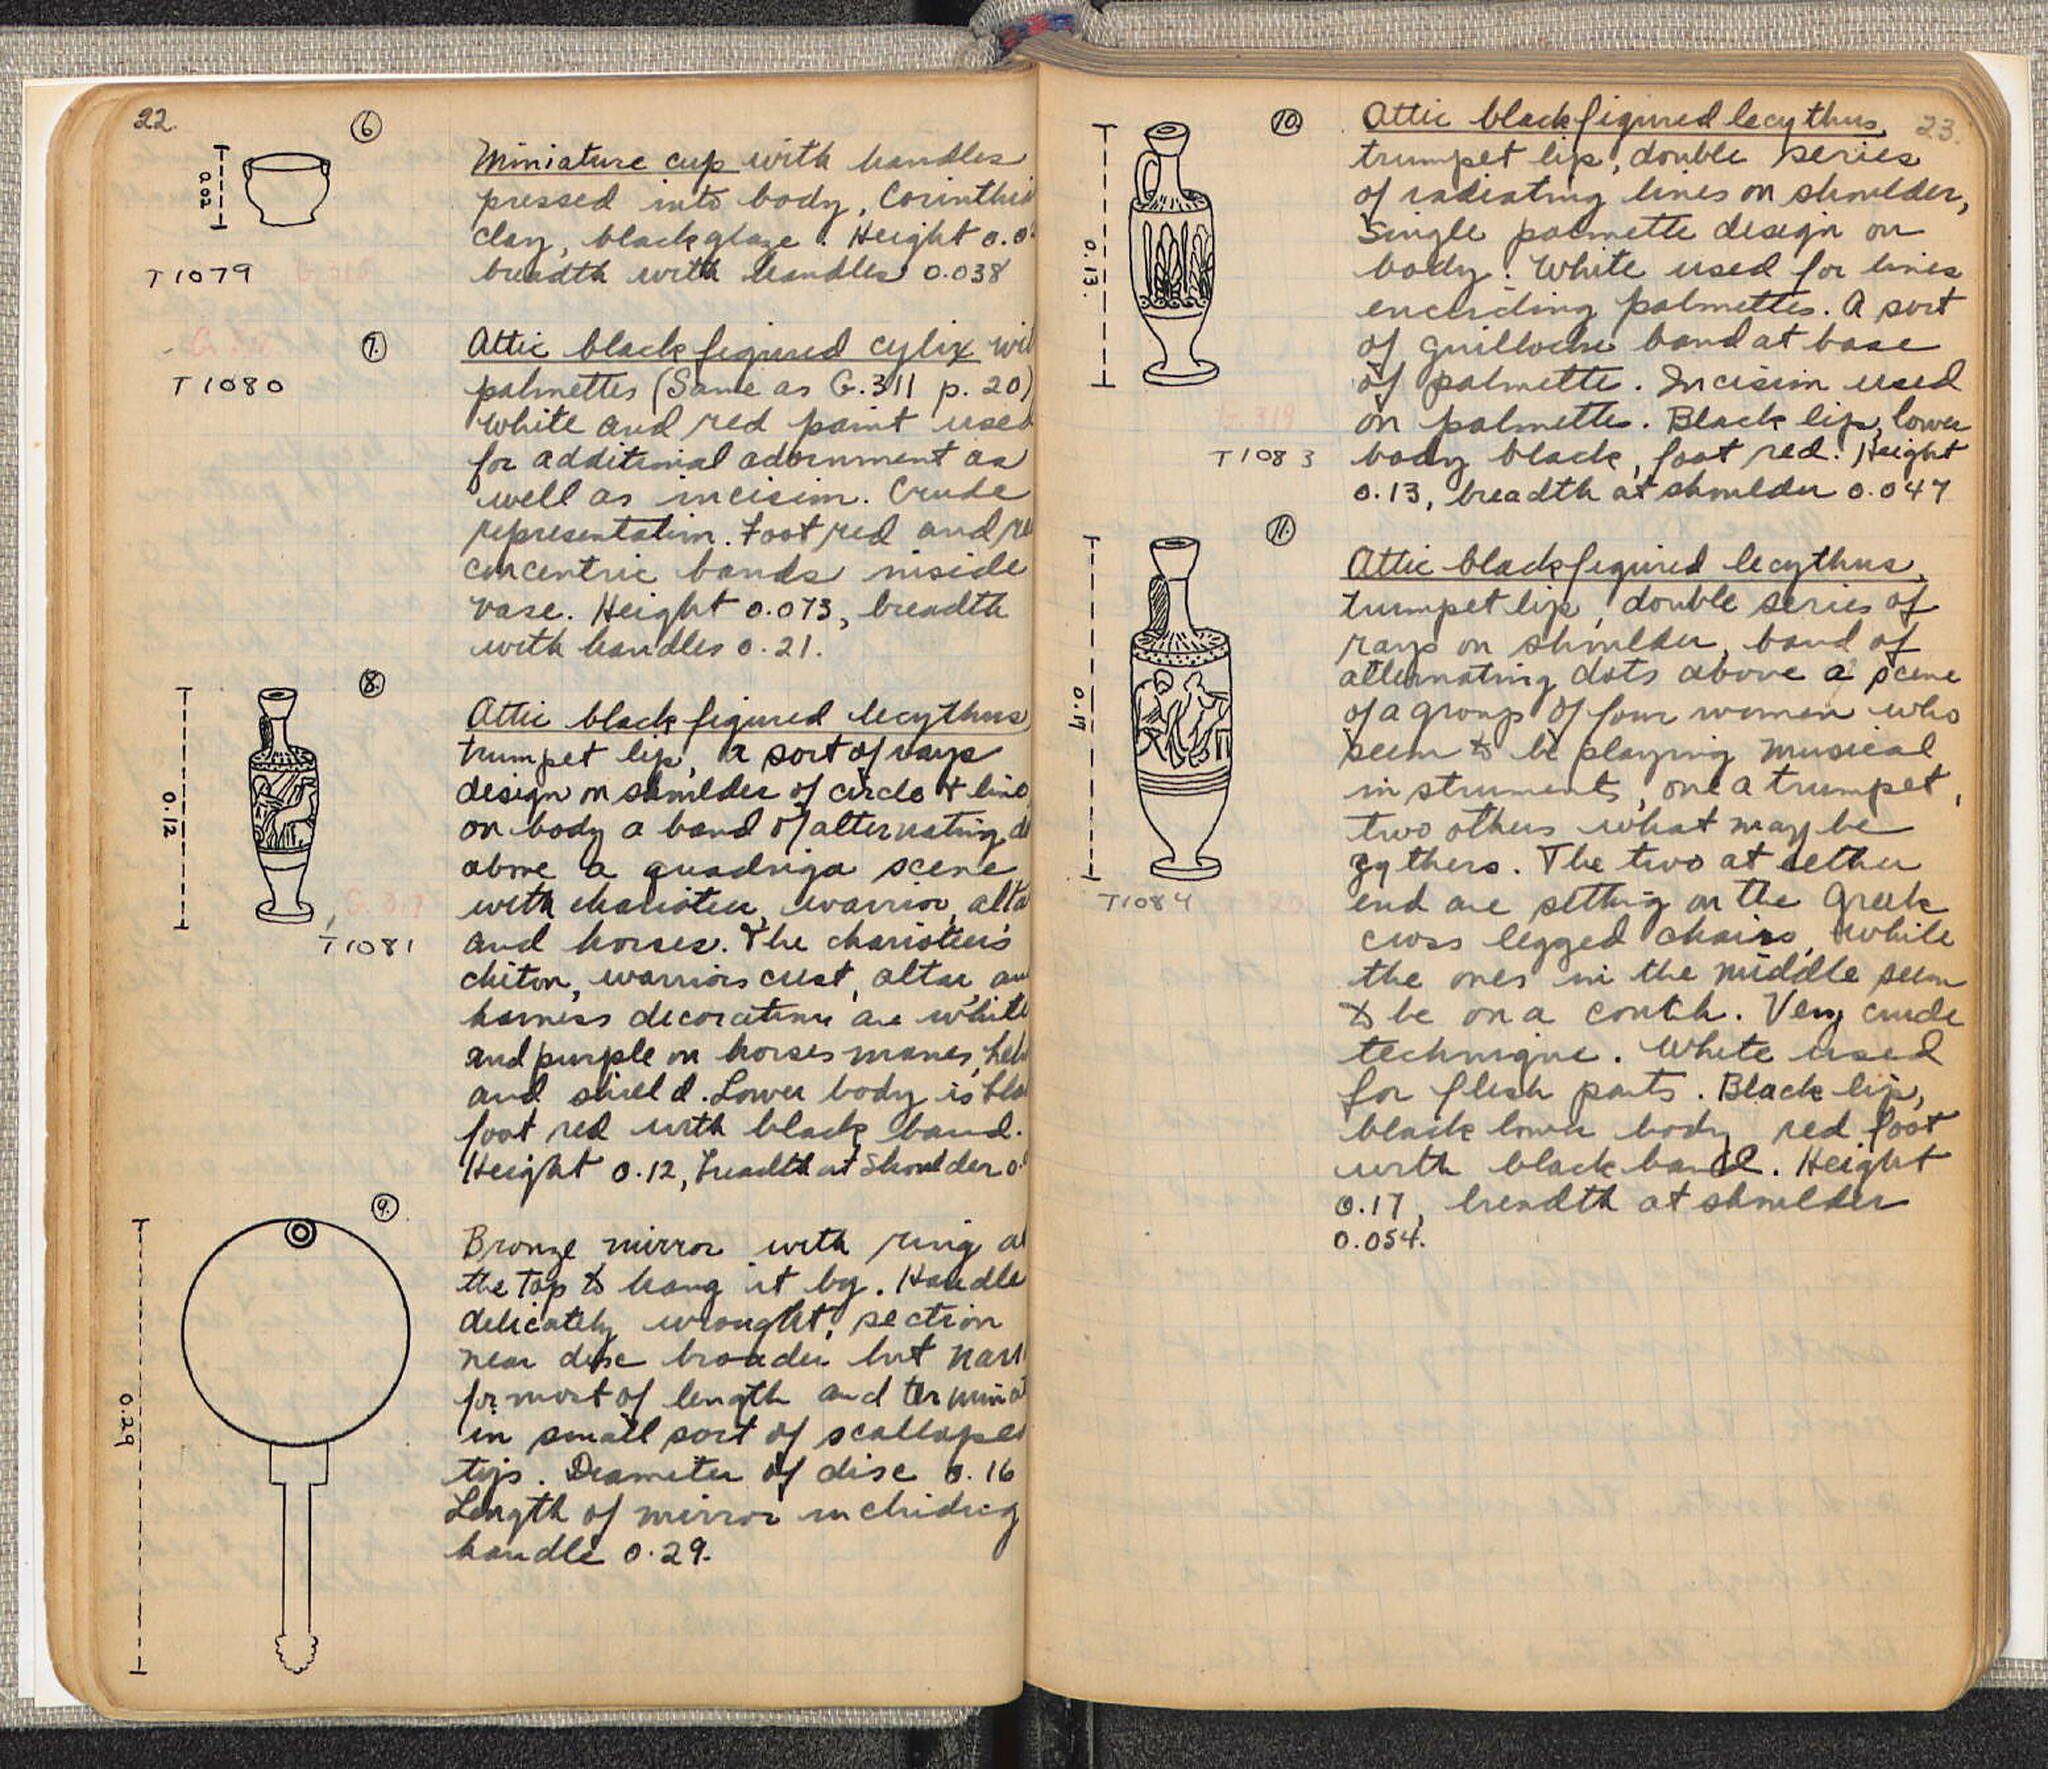 22.
6
0.02
T1079
Miniature cup with handles
pressed into body, Corinthi
clay, black glaze. Height 0.0
breadth with handles 0.038
7.
T1080
Attic black figured cylix wi
palmettes (Same as G.311 p. 20)
White and red paint used
for additional adornment as
well as incision. Crude
representation. Foot red and re
concentric bands inside
vase. Height 0.073, breadth
with handles 0.21.
8.
0.12
T1081
Attic black figured lecythus
trumpet lip, a sort of rays
design on shoulder of circle & line
on body a band of alternating d
above a quadriga scene
with charioteer, warrior, alta
and horses. The charioteer's
chiton, warriors crest, altar, an
harness decorations are white
and purple on horses manes, hel
and shield. Lower body is bla
foot red with black band.
Height 0.12, breadth at shoulder 0.
9.
0.29
Bronze mirror with ring at
the top to hang it by. Handle
delicately wrought, section
near disc broader but narr
for most of length and terminat
in small sort of scalloped
tip. Diameter of disc 0.16
Length of mirror including
handle 0.29.
23.
10.
0.13.
G.319
T1083
Attic black figured lecythus,
trumpet lip, double series
of radiating lines on shoulder,
single palmette design on
body. White used for lines
encircling palmettes. A sort
of guilloche band at base
of palmette. Incision used
on palmettes. Black lip, lower
body black, foot red. Height
0.13, breadth at shoulder 0.047
11.
0.17
T1084
Attic black figured lecythus,
trumpet lip, double series of
rays on shoulder, band of
alternating dots above a scene
of a group of four women who
seem to be playing musical
instruments, one a trumpet,
two others what may be
zythers. The two at either
end are sitting on the Greek
cross legged chairs, while
the ones in the middle seem
to be on a couch. Very crude
technique. White used
for flesh parts. Black lip,
black lower body red foot
with black band. Height
0.17, breadth at shoulder
0.054.